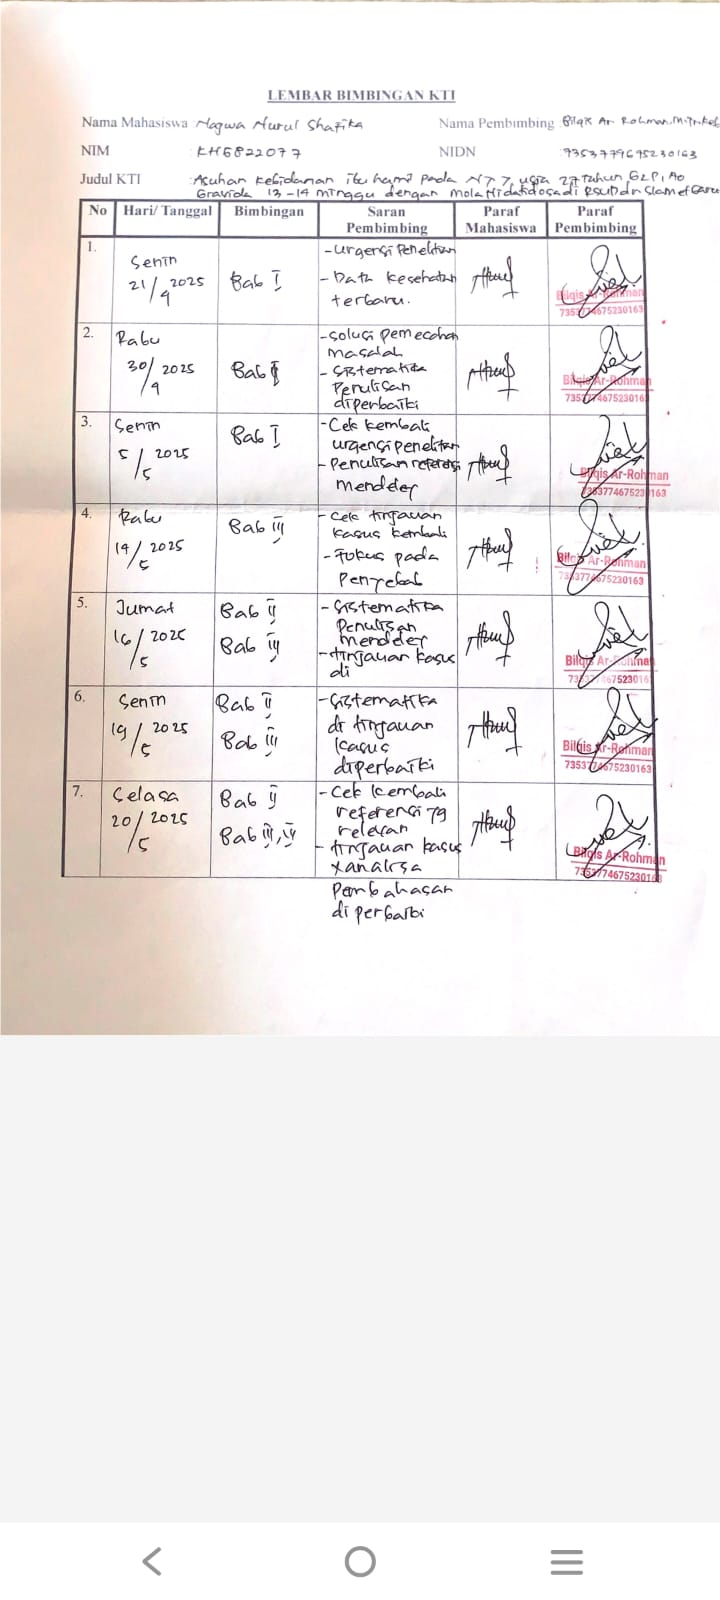 LEMBAR BIMBINGAN KTI
Nama Mahasiswa : Nagwa Nurul Shafika
Nama Pembimbing Bilqis Ar Rohman, M.Tr.Keb
NIM : KHG822077
NIDN : 7353774675230163
Judul KTI : Asuhan Kebidanan ibu hamil pada Ny 7, usia 27 tahun, G2P1A0
Gravida 13-14 minggu dengan mola Hidatidosa di RSUD dr Slamet Garut
No Hari/ Tanggal Bimbingan Saran Pembimbing Paraf Mahasiswa Paraf Pembimbing
1. Senin 21/4 2025 Bab I
- urgensi Penelitian
- Data kesehatan terbaru.
Bilqis Ar-Rohman
7353774675230163
2. Rabu 30/4 2025 Bab I
- solusi pemecahan masalah
- Sistematika Penulisan diperbaiki
Bilqis Ar-Rohman
7353774675230163
3. Senin 5/5 2025 Bab I
- Cek kembali urgensi penelitan
- Penulisan referensi mendeley
Bilqis Ar-Rohman
7353774675230163
4. Rabu 14/5 2025 Bab III
- Cek tinjauan kasus kembali
- Fokus pada Penyebab
Bilqis Ar-Rohman
7353774675230163
5. Jumat 16/5 2025 Bab II Bab III
- Sistematika Penulisan mendeley
- tinjauan kasus di
Bilqis Ar-Rohman
7353774675230163
6. Senin 19/5 2025 Bab II Bab III
- Sistematika di tinjauan kasus diperbaiki
Bilqis Ar-Rohman
7353774675230163
7. Selasa 20/5 2025 Bab II Bab III, IV
- Cek kembali referensi yg relevan
- tinjauan kasus
Pembahasan
diperbaiki
Bilqis Ar-Rohman
7353774675230163